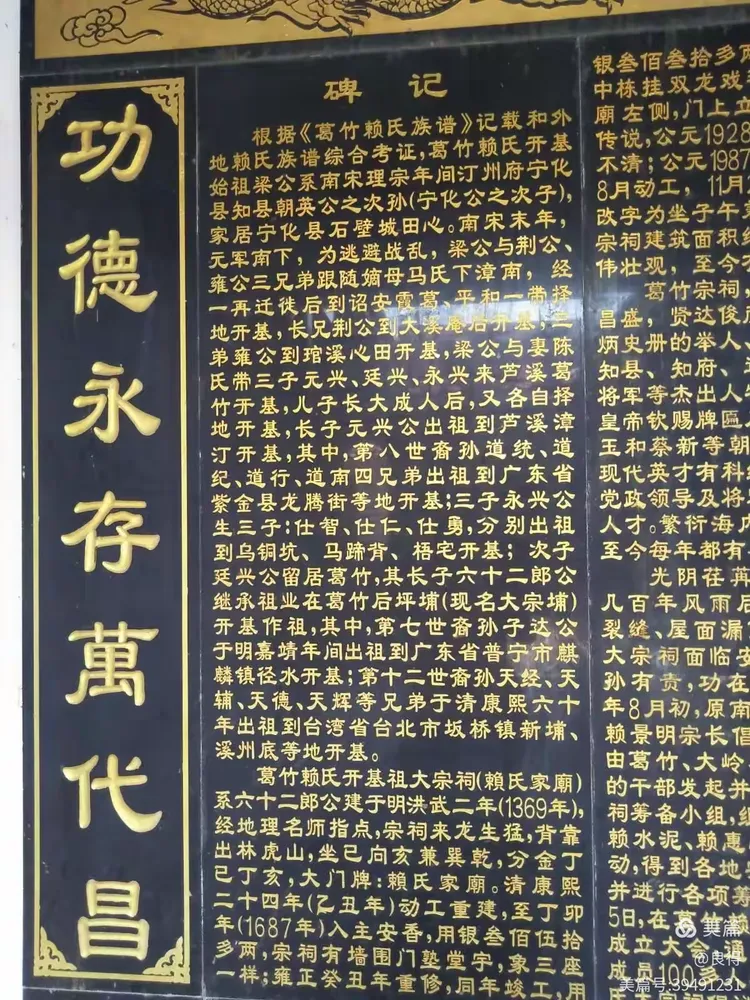 功德永存萬代昌
碑记
根据《葛竹赖氏族谱》记载和外
地赖氏族谱综合考证,葛竹赖氏开基
始祖梁公系南宋理宗年间汀州府宁化
县知县朝英公之次孙(宁化公之次子),
家居宁化县石壁城田心。南宋末年,
元军南下,为逃避战乱,梁公与荆公、
雍公三兄弟跟随嫡母马氏下漳南,经
一再迁徙后到诏安霞葛、平和一带择
地开基,长兄荆公到大溪庵后开基,二
弟雍公到琯溪心田开基,梁公与妻陈
氏带三子元兴、廷兴、永兴来芦溪葛
竹开基,儿子长大成人后,又各自择
地开基,长子元兴公出祖到芦溪漳
汀开基,其中,第八世裔孙道统、道
纪、道行、道南四兄弟出祖到广东省
紫金县龙腾街等地开基;三子永兴公
生三子:仕智、仕仁、仕勇,分别出祖
到乌铜坑、马蹄背、梧宅开基;次子
廷兴公留居葛竹,其长子六十二郎公
继承祖业在葛竹后坪埔(现名大宗埔)
开基作祖,其中,第七世裔孙子达公
于明嘉靖年间出祖到广东省普宁市麒
麟镇径水开基;第十二世裔孙天经、天
辅、天德、天辉等兄弟于清康熙六十
年出祖到台湾省台北市坂桥镇新埔、
溪州底等地开基。
葛竹赖氏开基祖大宗祠(賴氏家廟)
系六十二郎公建于明洪武二年(1369年),
经地理名师指点,宗祠来龙生猛,背靠
出林虎山,坐巳向亥兼巽乾,分金丁
巳丁亥,大门牌:賴氏家廟。清康熙
二十四年(乙丑年)动工重建,至丁卯
年(1687年)入主安香,用银叁佰伍拾
多两,宗祠有墙围门塾堂宇,象三座
一样;雍正癸丑年重修,同年竣工,用
银叁佰叁拾多两
中栋挂双龙戏
庙左侧,门上立
传说,公元1928
不清;公元1987
8月动工,11月
改字为坐子午
宗祠建筑面积
伟壮观,至今
葛竹宗祠
昌盛,贤达俊
炳史册的举人、
知县、知府、
将军等杰出人
皇帝钦赐牌匾
王和蔡新等朝
现代英才有科
党政领导及将
人才。繁衍海
至今每年都有
光阴荏苒
几百年风雨后
裂缝、屋面漏
大宗祠面临安
孙有责,功在
年8月初,原南
赖景明宗长倡
由葛竹、大岭
的干部发起并
祠筹备小组,组
赖水泥、赖惠
动,得到各地
并进行各项筹
5日,在葛竹赖
成立大会,通
成员100多人
美篇
@良得
美篇号:39491231